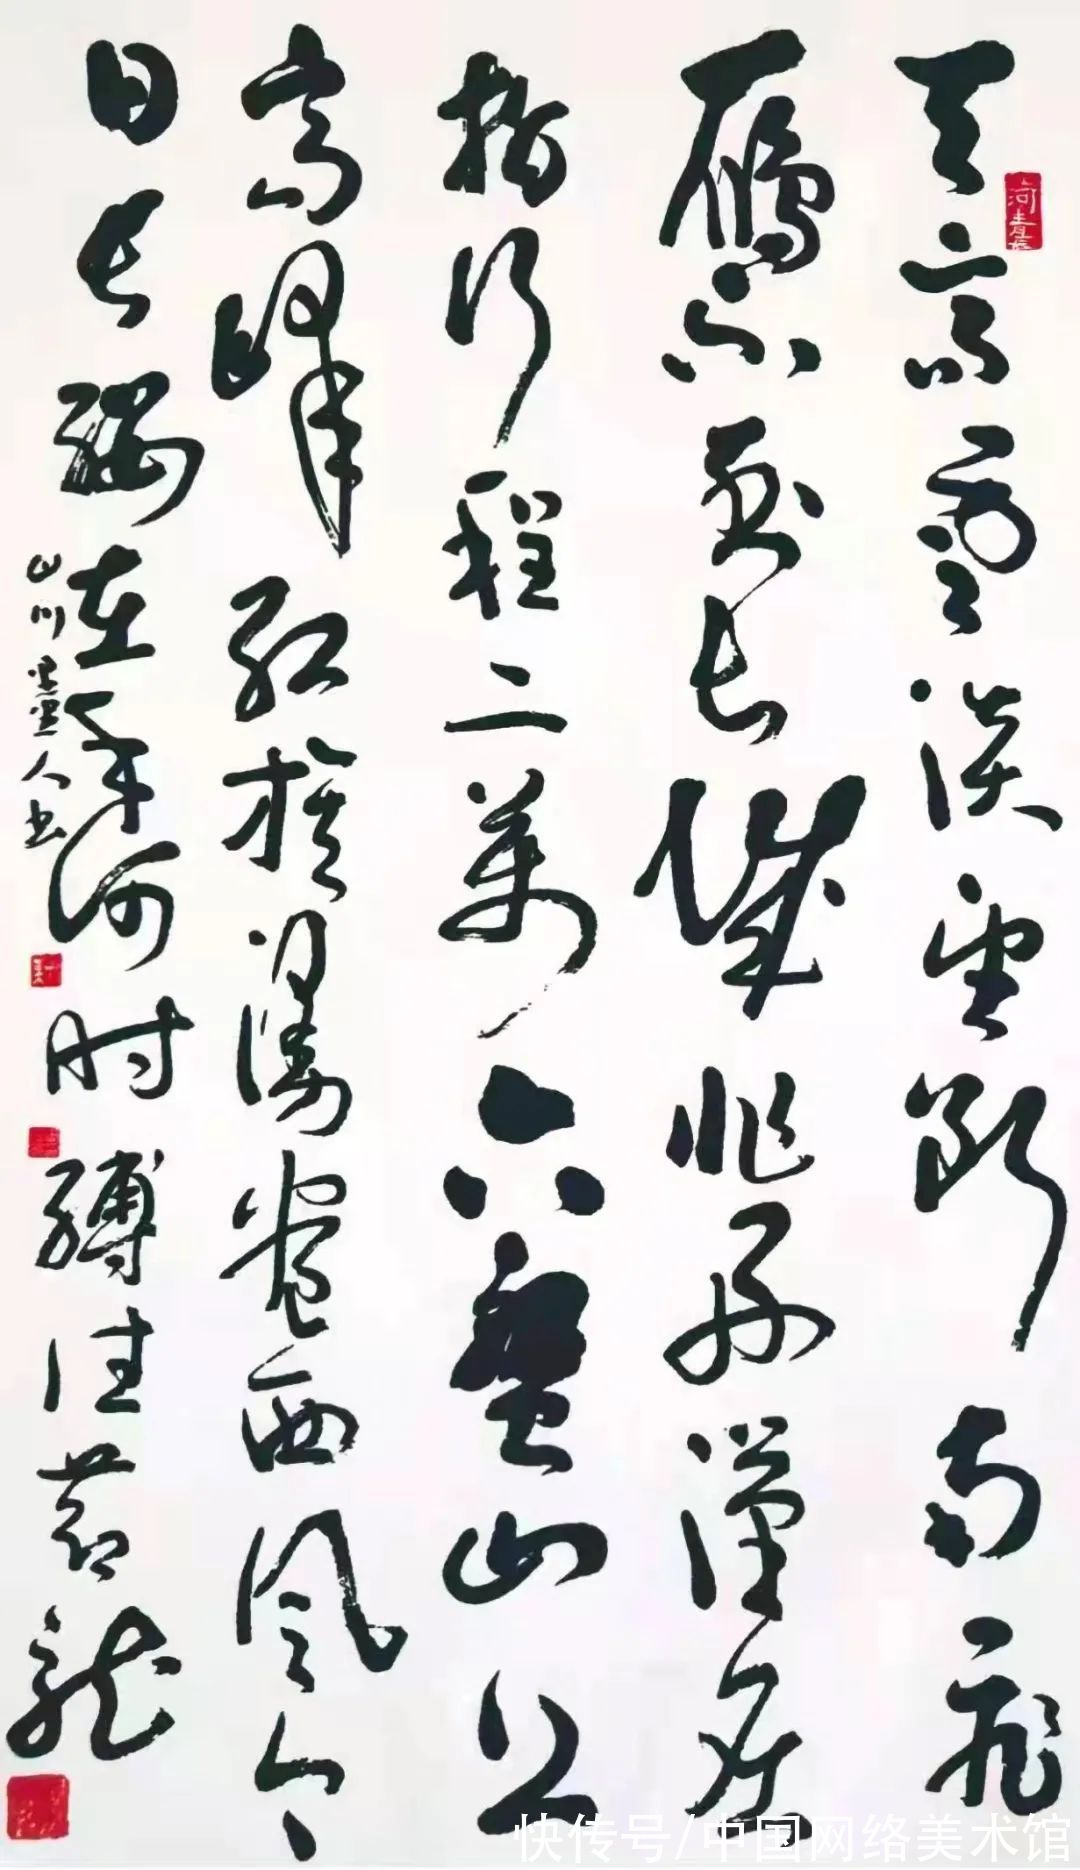 天高雲淡望断南飛
雁不到长城非好漢屈
指行程二萬六盤山上
高峰红旗漫卷西风今
日长缨在手何时缚住苍龍
山川人书
快传号/中国网络美术馆